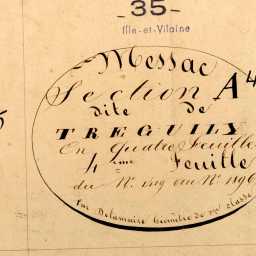 -35-
Ille-et-Vilaine
Messac
Section A4
dite de
TREGUILY
En Quatre Feuilles
4ème Feuille
du N° 1119 au N° 1496
Par Delamaire Géomètre de 1ère Classe